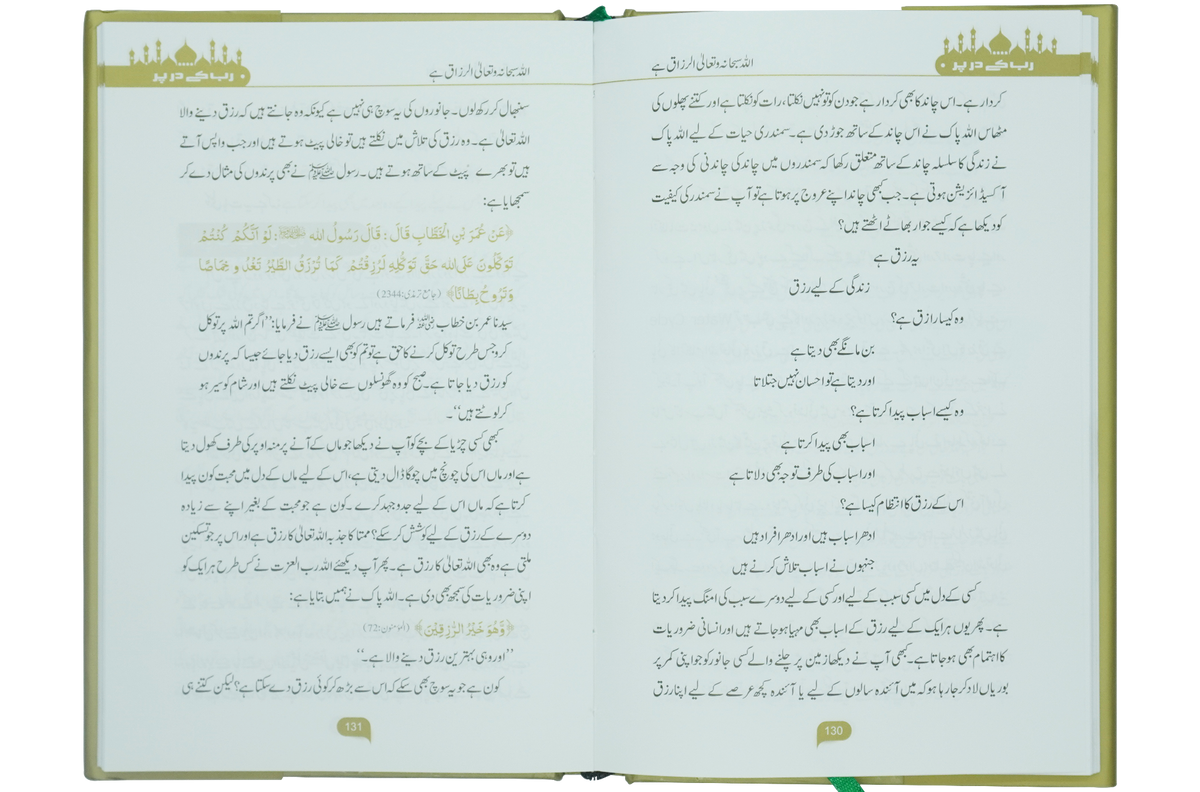 رب کے در پر
اللہ سبحانہ وتعالیٰ الرزاق ہے
کردار ہے۔ اس چاند کا بھی کردار ہے جو دن کو تو نہیں نکلتا، رات کو نکلتا ہے اور کتنے پھلوں کی
مٹھاس اللہ پاک نے اس چاند کے ساتھ جوڑ دی ہے۔ سمندری حیات کے لیے اللہ پاک
نے زندگی کا سلسلہ چاند کے ساتھ متعلق رکھا کہ سمندروں میں چاند کی چاندنی کی وجہ سے
آکسیڈائزیشن ہوتی ہے۔ جب کبھی چاند اپنے عروج پر ہوتا ہے تو آپ نے سمندر کی کیفیت
کو دیکھا ہے کہ کیسے جوار بھاٹے اٹھتے ہیں؟
یہ رزق ہے
زندگی کے لیے رزق
وہ کیسا رازق ہے؟
بن مانگے بھی دیتا ہے
اور دیتا ہے تو احسان نہیں جتلاتا
وہ کیسے اسباب پیدا کرتا ہے؟
اسباب بھی پیدا کرتا ہے
اور اسباب کی طرف توجہ بھی دلاتا ہے
اس کے رزق کا انتظام کیسا ہے؟
ادھر اسباب ہیں اور ادھر افراد ہیں
جنہوں نے اسباب تلاش کرنے ہیں
کسی کے دل میں کسی سبب کے لیے اور کسی کے لیے دوسرے سبب کی امنگ پیدا کر دیتا
ہے۔ پھر یوں ہر ایک کے لیے رزق کے اسباب بھی مہیا ہو جاتے ہیں اور انسانی ضروریات
کا اہتمام بھی ہو جاتا ہے۔ کبھی آپ نے دیکھا زمین پر چلنے والے کسی جانور کو جو اپنی کمر پر
بوریاں لاد کر جا رہا ہو کہ میں آئندہ سالوں کے لیے یا آئندہ کچھ عرصے کے لیے اپنا رزق
130
رب کے در پر
اللہ سبحانہ وتعالیٰ الرزاق ہے
سنبھال کر رکھ لوں۔ جانوروں کی یہ سوچ ہی نہیں ہے کیونکہ وہ جانتے ہیں کہ رزق دینے والا
اللہ تعالیٰ ہے۔ وہ رزق کی تلاش میں نکلتے ہیں تو خالی پیٹ ہوتے ہیں اور جب واپس آتے
ہیں تو بھرے پیٹ کے ساتھ ہوتے ہیں۔ رسول ﷺ نے بھی پرندوں کی مثال دے کر
سمجھایا ہے:
﴿عَنْ عُمَرَ بْنِ الْخَطَّابِ قَالَ: قَالَ رَسُولُ اللہ ﷺ: لَوْ اَنَّكُمْ كُنْتُمْ
تَوَكَّلُونَ عَلَی اللہ حَقَّ تَوَكُّلِهِ لَرُزِقْتُمْ كَمَا تُرْزَقُ الطَّيْرُ تَغْدُو خِمَاصًا
وَتَرُوحُ بِطَانًا﴾ (جامع ترمذی: 2344)
سیدنا عمر بن خطاب رضی اللہ عنہ فرماتے ہیں رسول ﷺ نے فرمایا: ’’اگر تم اللہ پر توکل
کرو جس طرح توکل کرنے کا حق ہے تو تم کو بھی ایسے رزق دیا جائے جیسا کہ پرندوں
کو رزق دیا جاتا ہے۔ صبح کو وہ گھونسلوں سے خالی پیٹ نکلتے ہیں اور شام کو سیر ہو
کر لوٹتے ہیں‘‘۔
کبھی کسی چڑیا کے بچے کو آپ نے دیکھا جو ماں کے آنے پر منہ اوپر کی طرف کھول دیتا
ہے اور ماں اس کی چونچ میں چوگا ڈال دیتی ہے، اس کے لیے ماں کے دل میں محبت کون پیدا
کرتا ہے کہ ماں اس کے لیے جدوجہد کرے۔ کون ہے جو محبت کے بغیر اپنے سے زیادہ
دوسرے کے رزق کے لیے کوشش کر سکے؟ ممتا کا جذبہ اللہ تعالیٰ کا رزق ہے اور اس پر جو تسکین
ملتی ہے وہ بھی اللہ تعالیٰ کا رزق ہے۔ پھر آپ دیکھئے اللہ رب العزت نے کس طرح ہر ایک کو
اپنی ضروریات کی سمجھ بھی دی ہے۔ اللہ پاک نے ہمیں بتایا ہے:
﴿وَّهُوَ خَيْرُ الرّٰزِقِيْنَ﴾ (المؤمنون: 72)
’’اور وہی بہترین رزق دینے والا ہے۔‘‘
کون ہے جو یہ سوچ بھی سکے کہ اس سے بڑھ کر کوئی رزق دے سکتا ہے؟ لیکن کتنے ہی
131